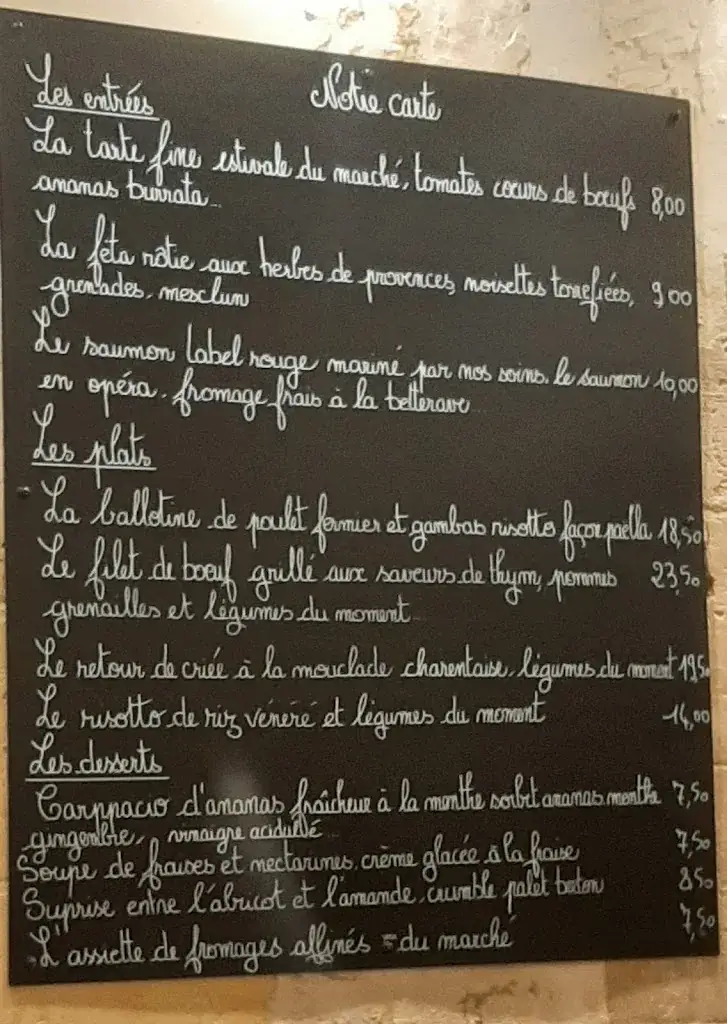 Notre carte
Les entrées
La tarte fine estivale du marché, tomates cœurs de bœufs 8,00
ananas burrata
La feta rôtie aux herbes de provences, noisettes torrefiées, 9,00
grenades, mesclun
Le saumon label rouge mariné par nos soins, le saumon 10,00
en opéra, fromage frais à la betterave
Les plats
La ballotine de poulet fermier et gambas risotto façon paella 18,50
Le filet de bœuf grillé aux saveurs de thym, pommes 23,50
grenailles et légumes du moment
Le retour de criée à la mouclade charentaise, légumes du moment 19,5
Le risotto de riz vénéré et légumes du moment 14,00
Les desserts
Carppacio d'ananas fraîcheur à la menthe sorbet ananas menthe 7,50
gingembre, vinaigre acidullé
Soupe de fraises et nectarines, crème glacée à la fraise 7,50
Suprise entre l'abricot et l'amande, crumble palet breton 8,50
L'assiette de fromages affinés du marché 7,50